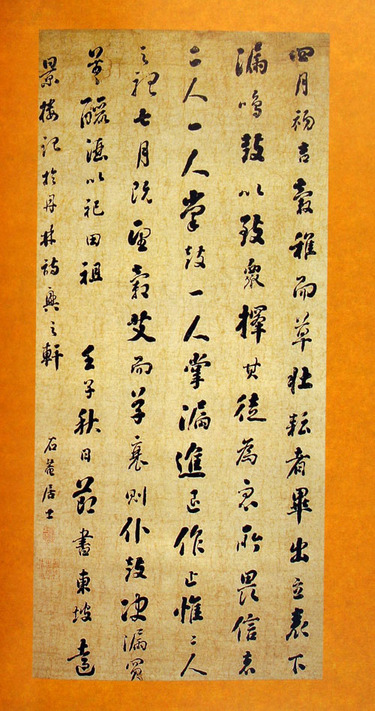 四月初吉穀稚而草壯耘者畢出立表下
漏鳴鼓以致衆擇其徒為衆所畏信者
二人一人掌鼓一人掌漏進退作止惟二人
之聽七月既望穀艾而草衰則仆鼓决漏買
羊釃酒以祀田祖 壬子秋日節書東坡遠
景樓記於丹林詩興之軒 石菴居士